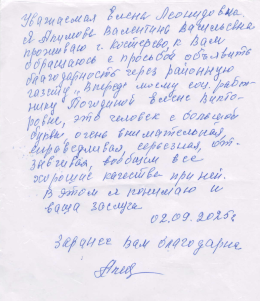 Уважаемая Елена Леонидовна,
Я Якунова Валентина Васильевна
проживаю г. Костерево, к Вам
обращаюсь с просьбой объявить
благодарность через районную
газету „Вперед" моему соц. работ-
нику Погодиной Елене Викто-
ровне, это человек с большой
буквы, очень внимательная,
справедливая, серьезная, отз-
ывчивая, вообщем все
хорошие качества при ней.
В этом я понимаю и
ваша заслуга
02.09.2025г
Заранее Вам благодарна